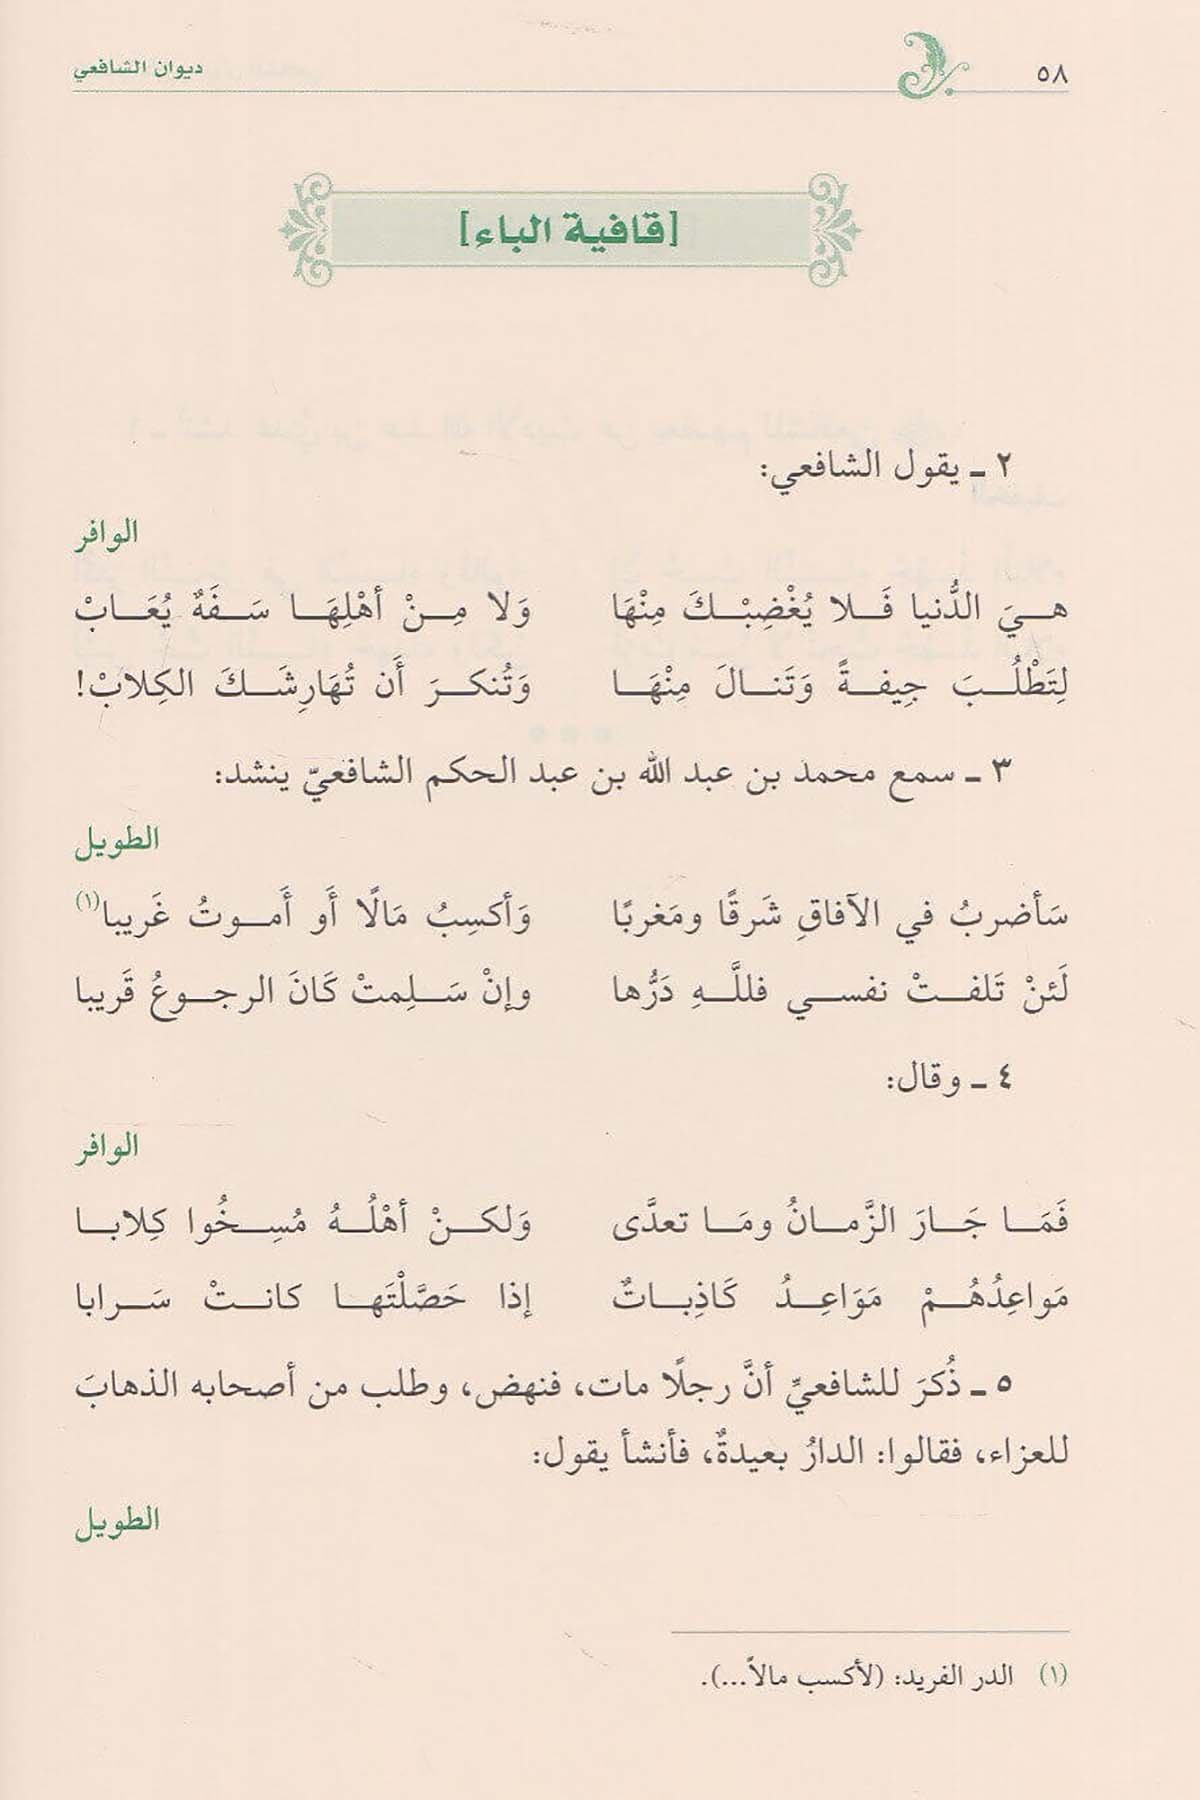 ٥٨
ديوان الشافعي
[قافية الباء]
٢ ـ يقول الشافعي:
الوافر
هـيَ الدُّنيا فَـلا يُغْضِبْـكَ مِنْهَا وَلا مِـنْ أهْلِهَـا سَـفَهٌ يُعَـابْ
لِتَطْلُـبَ جِيفـةً وَتَنـالَ مِنْهَـا وَتُنكـرَ أَن تُهَارِشَـكَ الكِلابْ!
٣ ـ سمع محمد بن عبد الله بن عبد الحكم الشافعيّ ينشد:
الطويل
سَأضربُ في الآفاقِ شَرقًا ومَغربًا وَأكسِبُ مَالًا أَو أَمـوتُ غَريبا(١)
لَئنْ تَلفـتْ نفسـي فللَّـهِ دَرُّها وإنْ سَـلِمتْ كَانَ الرجـوعُ قَريبا
٤ ـ وقال:
الوافر
فَمَـا جَـارَ الزَّمـانُ ومَـا تعدَّى وَلكـنْ أهْلُـهُ مُسِـخُوا كِلابـا
مَواعِدُهُـمْ مَوَاعِـدُ كَاذِبـاتٌ إذا حَصَّلْتَهـا كانـتْ سَـرابا
٥ ـ ذُكرَ للشافعيِّ أنَّ رجلًا مات، فنهض، وطلب من أصحابه الذهابَ
للعزاء، فقالوا: الدارُ بعيدةٌ، فأنشأ يقول:
الطويل
(١) الدر الفريد: (لأكسب مالاً...).